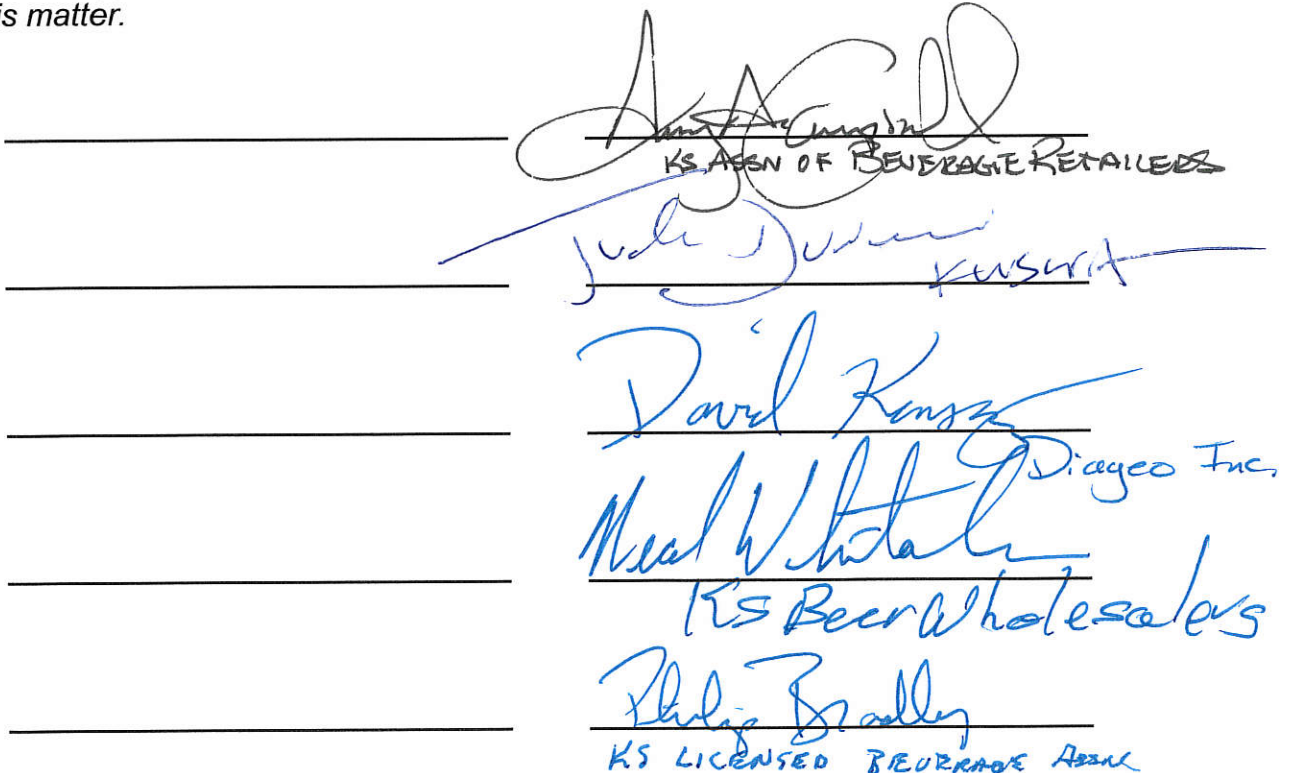 is matter.
Amy A Campbell
KS ASSN OF BEVERAGE RETAILERS
KWSWA
David
Diageo Inc.
Neal Whitaker
KS Beer Wholesalers
Philip Bradley
KS LICENSED BEVERAGE ASSN